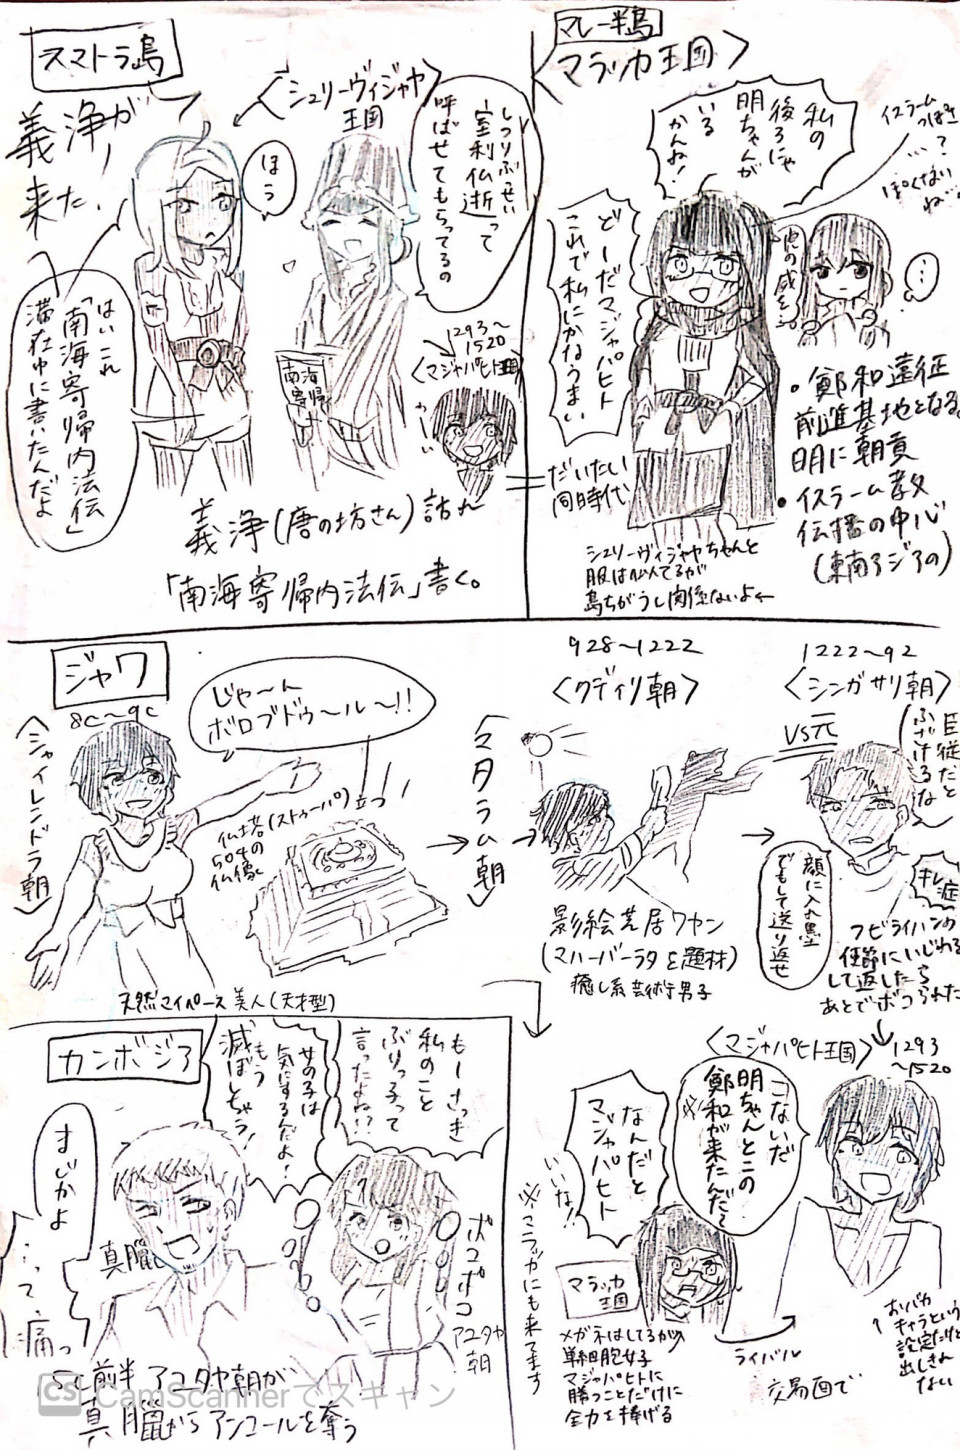 スマトラ島
義浄が
来た!
〈シュリーヴィジャヤ
王国〉
ほう
しつりぶせい
室利仏逝って
呼ばせてもらってるの
はいこれ
「南海寄帰内法伝」
滞在中に書いたんだよ
南海
寄帰
1293〜
1520
〈マジャパヒト王国〉
義浄(唐の坊さん)訪れ
「南海寄帰内法伝」書く。
マレー半島
〈マラッカ王国〉
私の
後ろにゃ
明ちゃんが
いる
かんね!
どーだマジャパヒト
これで私にかなうまい
イスラーム
っぽさ
…?
ぽくない
ね…
虎の威を…
…
・鄭和遠征
前進基地となる。
明に朝貢
・イスラーム教
伝播の中心
(東南アジアの)
だいたい
同時代
シュリーヴィジャヤちゃんと
服は似てるが
島ちがうし関係ないよ←
ジャワ
8c〜9c
〈シャイレンドラ朝〉
じゃ〜ん
ボロブドゥ〜ル〜!!
立っ
仏塔(ストゥーパ)
504の
仏像
天然マイペース美人(天才型)
〈マタラム朝〉
928〜1222
〈クディリ朝〉
影絵芝居ワヤン
(マハーバーラタを題材)
癒し系芸術男子
1222〜92
〈シンガサリ朝〉
VS元
臣従だと
ふざけるな
顔に入れ墨
でもして送り返せ
キレ症
フビライハンの
使節にいじわる
して返したら
あとでボコられた
〈マジャパヒト王国〉
1293
〜1520
こないだ
明ちゃんとこの
鄭和が来たんだ〜
※
なんだと
マジャパヒト
いいな!
※マラッカにも来てます
マラッカ
王国
メガネはしてるが
単細胞女子
マジャパヒトに
勝つことだけに
全力を捧げる
ライバル
交易面で
↑おバカ
キャラという
設定だけど
出しきれ
ない
カンボジア
まじかよ
…って痛っ
真臘
もーさっき
私のこと
ぶりっ子って
言ったよね!?
女の子は
気にするんだよ!
もう
滅ぼしちゃう!
ボコボコ
アユタヤ
朝
15c前半 アユタヤ朝が
真臘からアンコールを奪う
CS CamScannerでスキャン